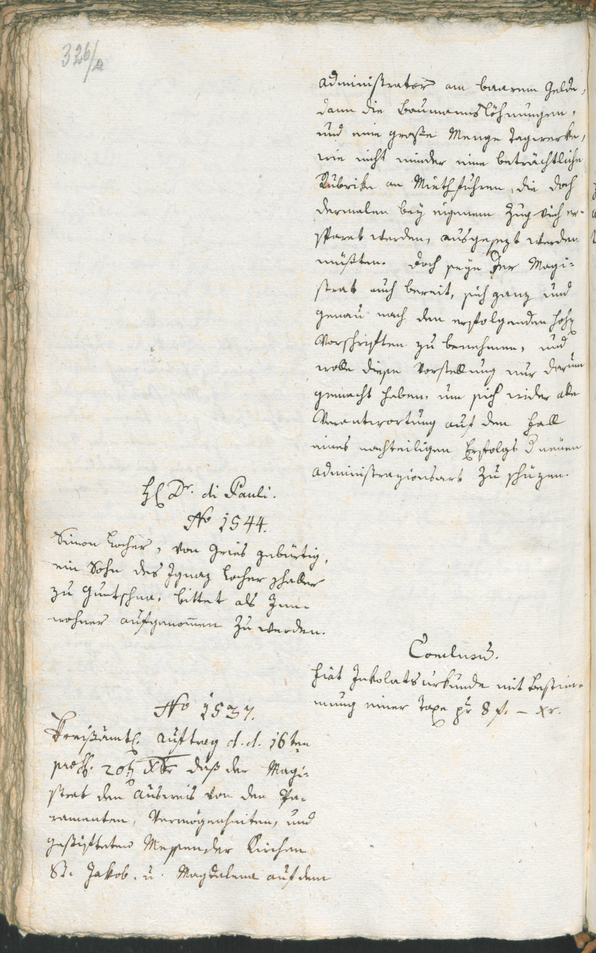 326/2
administrator am baarem Gelde,
dann die Baumannslöhnungen,
und eine große Menge Tagwerke,
wie nicht minder eine beträchtliche
Rubrike an Miethfuhren, die doch
dermalen bey eigenem Zug Vieh er-
sparet werden, ausgesezt werden
müßten. Doch seye der Magi-
strat auch bereit, sich ganz und
genau nach den erfolgenden hohen
Vorschriften zu benehmen, und
wolle diese Vorstellung nur darum
gemacht haben, um sich wider alle
Verantwortung auf den Fall
eines nachteiligen Erfolgs d neuen
administrazionsart zu schüzen.
H Dr. di Pauli.
No 1544.
Simon Locher, von Gries gebürtig,
ein Sohn des Ignaz Locher
zu Guntschna, bittet als Inn-
wohner aufgenommen zu werden.
Conclusum.
Fiat Inkolatsurkunde mit Bestim-
mung einer Taxe pr 8 f. – xr.
No 1537.
Kreisämtl. Auftrag d. d. 16ten
daß der Magi-
strat den Ausweis von den Pa-
ramenten, Vermögenheiten, und
gestifteten Messen der Kirchen
St. Jakob. u. Magdalena auf dem